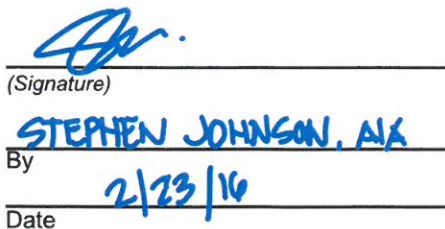 (Signature)
STEPHEN JOHNSON, AIA
By
2/23/16
Date